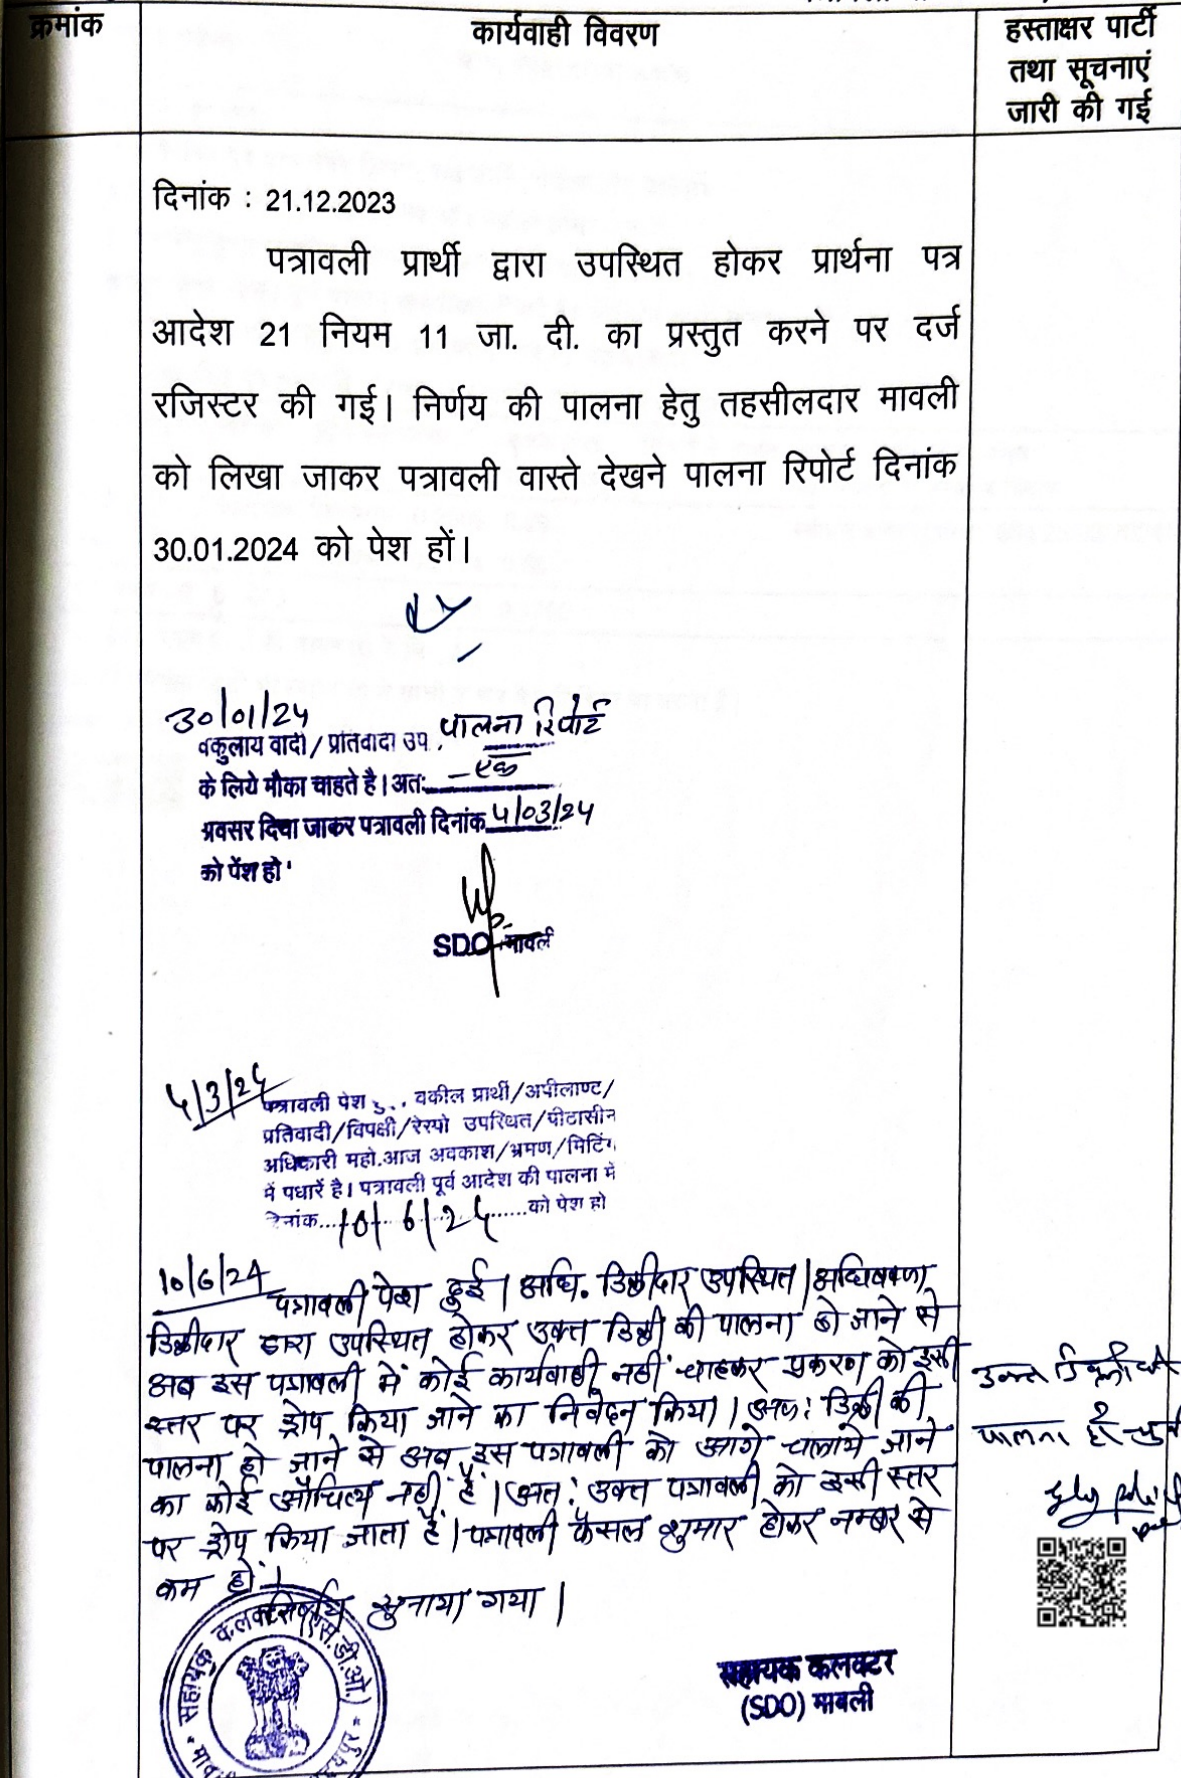 क्रमांक
कार्यवाही विवरण
हस्ताक्षर पार्टी
तथा सूचनाएं
जारी की गई
दिनांक : 21.12.2023
पत्रावली प्रार्थी द्वारा उपस्थित होकर प्रार्थना पत्र
आदेश 21 नियम 11 जा. दी. का प्रस्तुत करने पर दर्ज
रजिस्टर की गई। निर्णय की पालना हेतु तहसीलदार मावली
को लिखा जाकर पत्रावली वास्ते देखने पालना रिपोर्ट दिनांक
30.01.2024 को पेश हों।
30/01/24
वकुलाय वादी/प्रतिवादी उप. पालना रिपोर्ट
के लिये मौका चाहते है। अतः एक
अवसर दिया जाकर पत्रावली दिनांक 4/03/24
को पेंश हो
SDO मावली
4/3/24
पत्रावली पेश हु.. वकील प्रार्थी/अपीलाण्ट/
प्रतिवादी/विपक्षी/रेस्पो उपस्थित/पीटासीन
अधिकारी महो.आज अवकाश/भ्रमण/मिटिंग
में पधारें है। पत्रावली पूर्व आदेश की पालना में
दिनांक...10/6/24......को पेश हो
10/6/24
पत्रावली पेश हुई। अधि. डिक्रीदार उपस्थित। अधिवक्ता
डिक्रीदार द्वारा उपस्थित होकर उक्त डिक्री की पालना हो जाने से
अब इस पत्रावली में कोई कार्यवाही नहीं चाहकर प्रकरण को इसी
स्तर पर ड्रोप किया जाने का निवेदन किया। अतः डिक्री की
पालना हो जाने से अब इस पत्रावली को आगे चलाये जाने
का कोई औचित्य नहीं है। अतः उक्त पत्रावली को इसी स्तर
पर ड्रोप किया जाता है। पत्रावली फैसल शुमार होकर नम्बर से
कम हो।
निर्णय सुनाया गया।
उक्त डिक्री की
पालना हो चुकी
सहायक कलक्टर (एस.डी.ओ.)
सहायक कलक्टर
(SDO) मावली